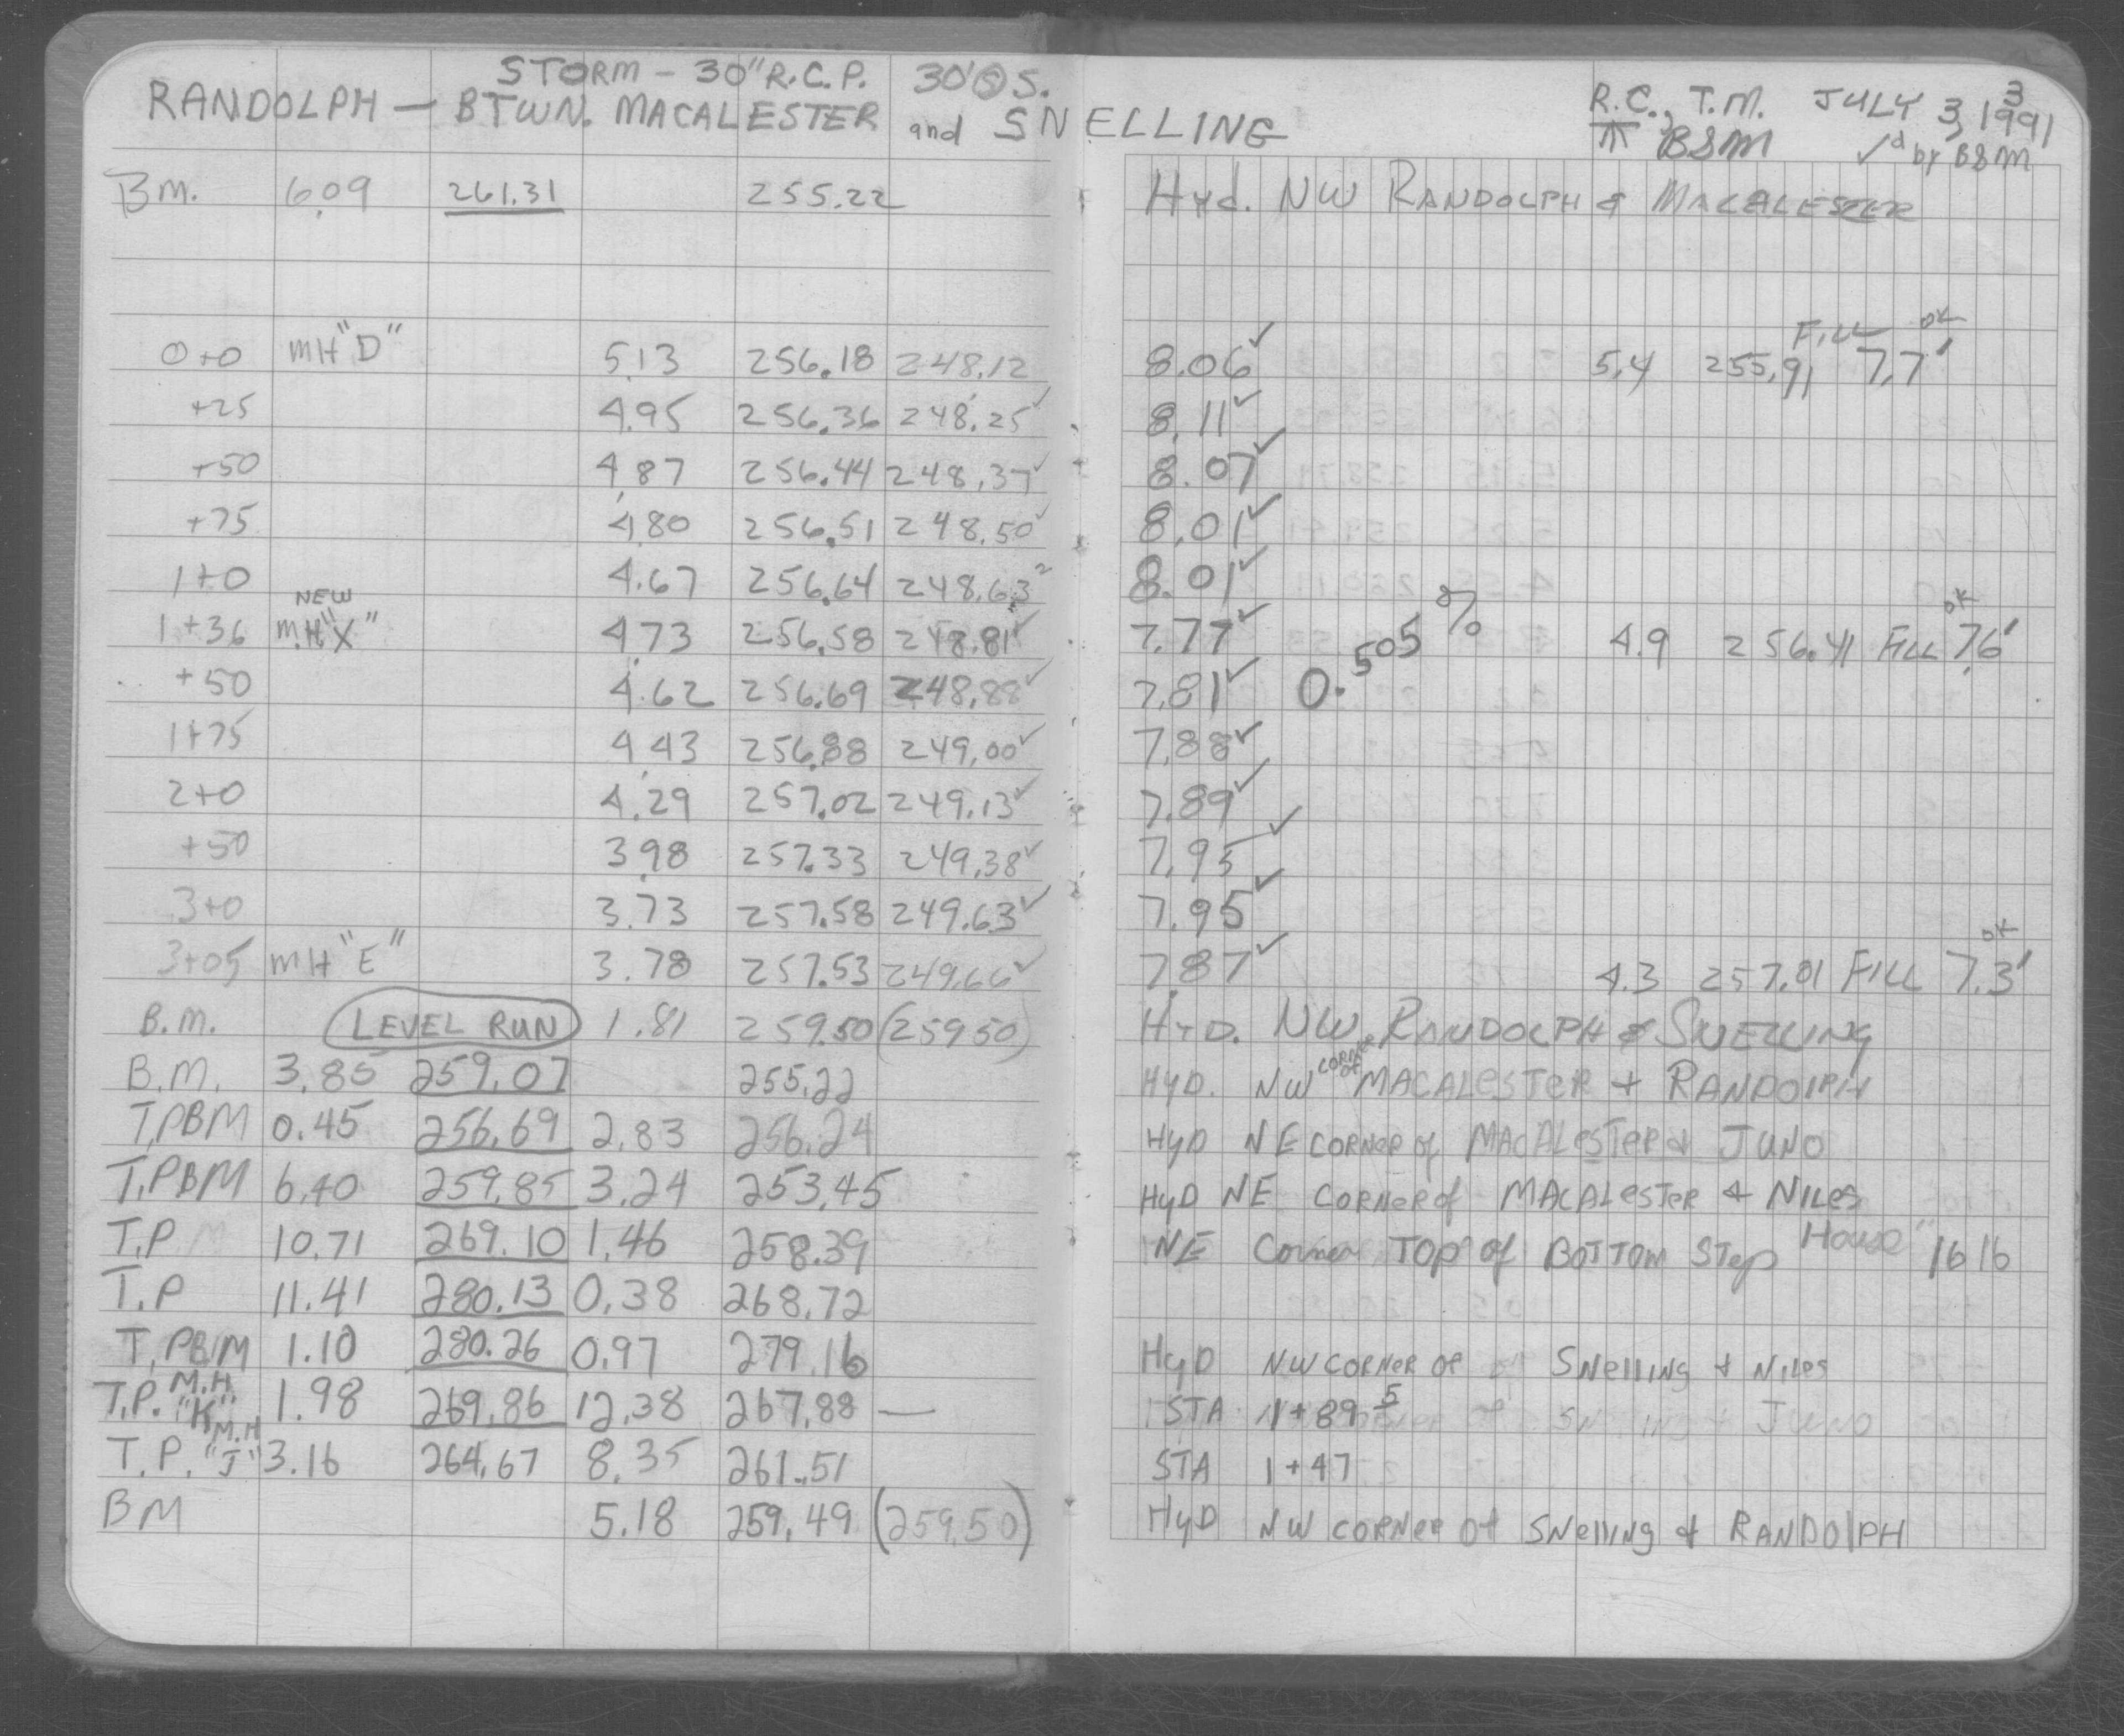 STORM - 30" R.C.P. 30' S S.
RANDOLPH - BTWN. MACALESTER and SNELLING R.C., T.M. JULY 3, 1991
BSM ✓d by BSM
BM. 6.09 261.31 255.22 Hyd. NW RANDOLPH & MACALESTER
FILL OK
0+0 MH "D" 5.13 256.18 248.12 8.06✓ 5.4 255.91 7.7'
+25 4.95 256.36 248.25✓ 8.11✓
+50 4.87 256.44 248.37✓ 8.07✓
+75 4.80 256.51 248.50✓ 8.01✓
1+0 4.67 256.64 248.63 8.01✓
NEW OK
1+36 M.H. "X" 4.73 256.58 248.81✓ 7.77✓ 0.505% 4.9 256.41 FILL 7.6'
+50 4.62 256.69 248.88✓ 7.81✓
1+75 4.43 256.88 249.00✓ 7.88✓
2+0 4.29 257.02 249.13✓ 7.89✓
+50 3.98 257.33 249.38✓ 7.95✓
3+0 3.73 257.58 249.63✓ 7.95✓
OK
3+05 MH "E" 3.78 257.53 249.66✓ 7.87✓ 4.3 257.01 FILL 7.3'
B.M. LEVEL RUN 1.81 259.50 (259.50) HYD. NW RANDOLPH & SNELLING
B.M. 3.85 259.07 255.22 HYD. NW CORNER OF MACALESTER + RANDOLPH
T.P BM 0.45 256.69 2.83 256.24 HYD NE CORNER of MACALESTER & JUNO
T.P BM 6.40 259.85 3.24 253.45 HYD NE CORNER of MACALESTER & NILES
T.P 10.71 269.10 1.46 258.39 NE Corner TOP of BOTTOM STEP House 1616
T.P 11.41 280.13 0.38 268.72
T.P B/M 1.10 280.26 0.97 279.16 HYD NW CORNER OF SNELLING & NILES
T.P. M.H. "K" 1.98 269.86 12.38 267.88 — STA 1+89 5
T.P. M.H "J" 3.16 264.67 8.35 261.51 STA 1+47
BM 5.18 259.49 (259.50) HYD NW CORNER OF SNELLING & RANDOLPH